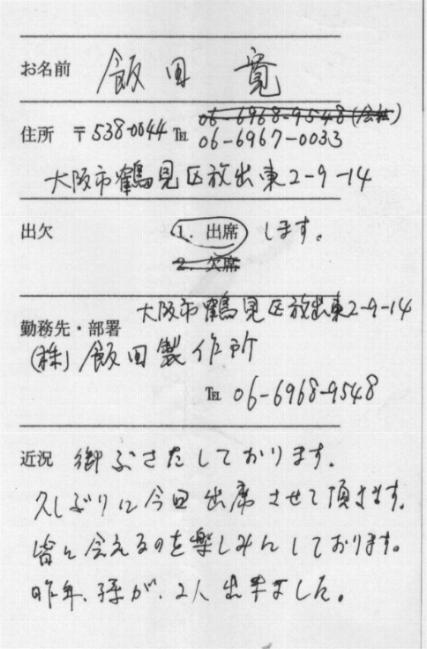 お名前 飯田 寛
06-6968-9548(会社)
住所 〒538-0044 TEL 06-6967-0033
大阪市鶴見区放出東2-9-14
出欠 1. 出席 します。
2. 欠席
大阪市鶴見区放出東2-9-14
勤務先・部署
(株)飯田製作所
TEL 06-6968-9548
近況 御ぶさたしております。
久しぶりに今回出席させて頂きます。
皆に会えるのを楽しみにしております。
昨年、孫が、2人出来ました。